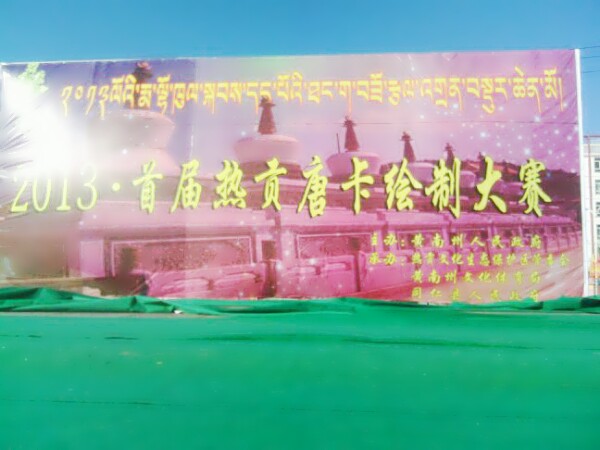 ༢༠༡༣ལོའི་མ་ལྷོ་ཁུལ་སྐབས་དང་པོའི་ཐང་ག་བཟོ་རྩལ་འགྲན་བསྡུར་ཆེན་མོ།
2013·首届热贡唐卡绘制大赛
主办:黄南州人民政府
承办:热贡文化生态保护区管委会
黄南州文化体育局
同仁县人民政府